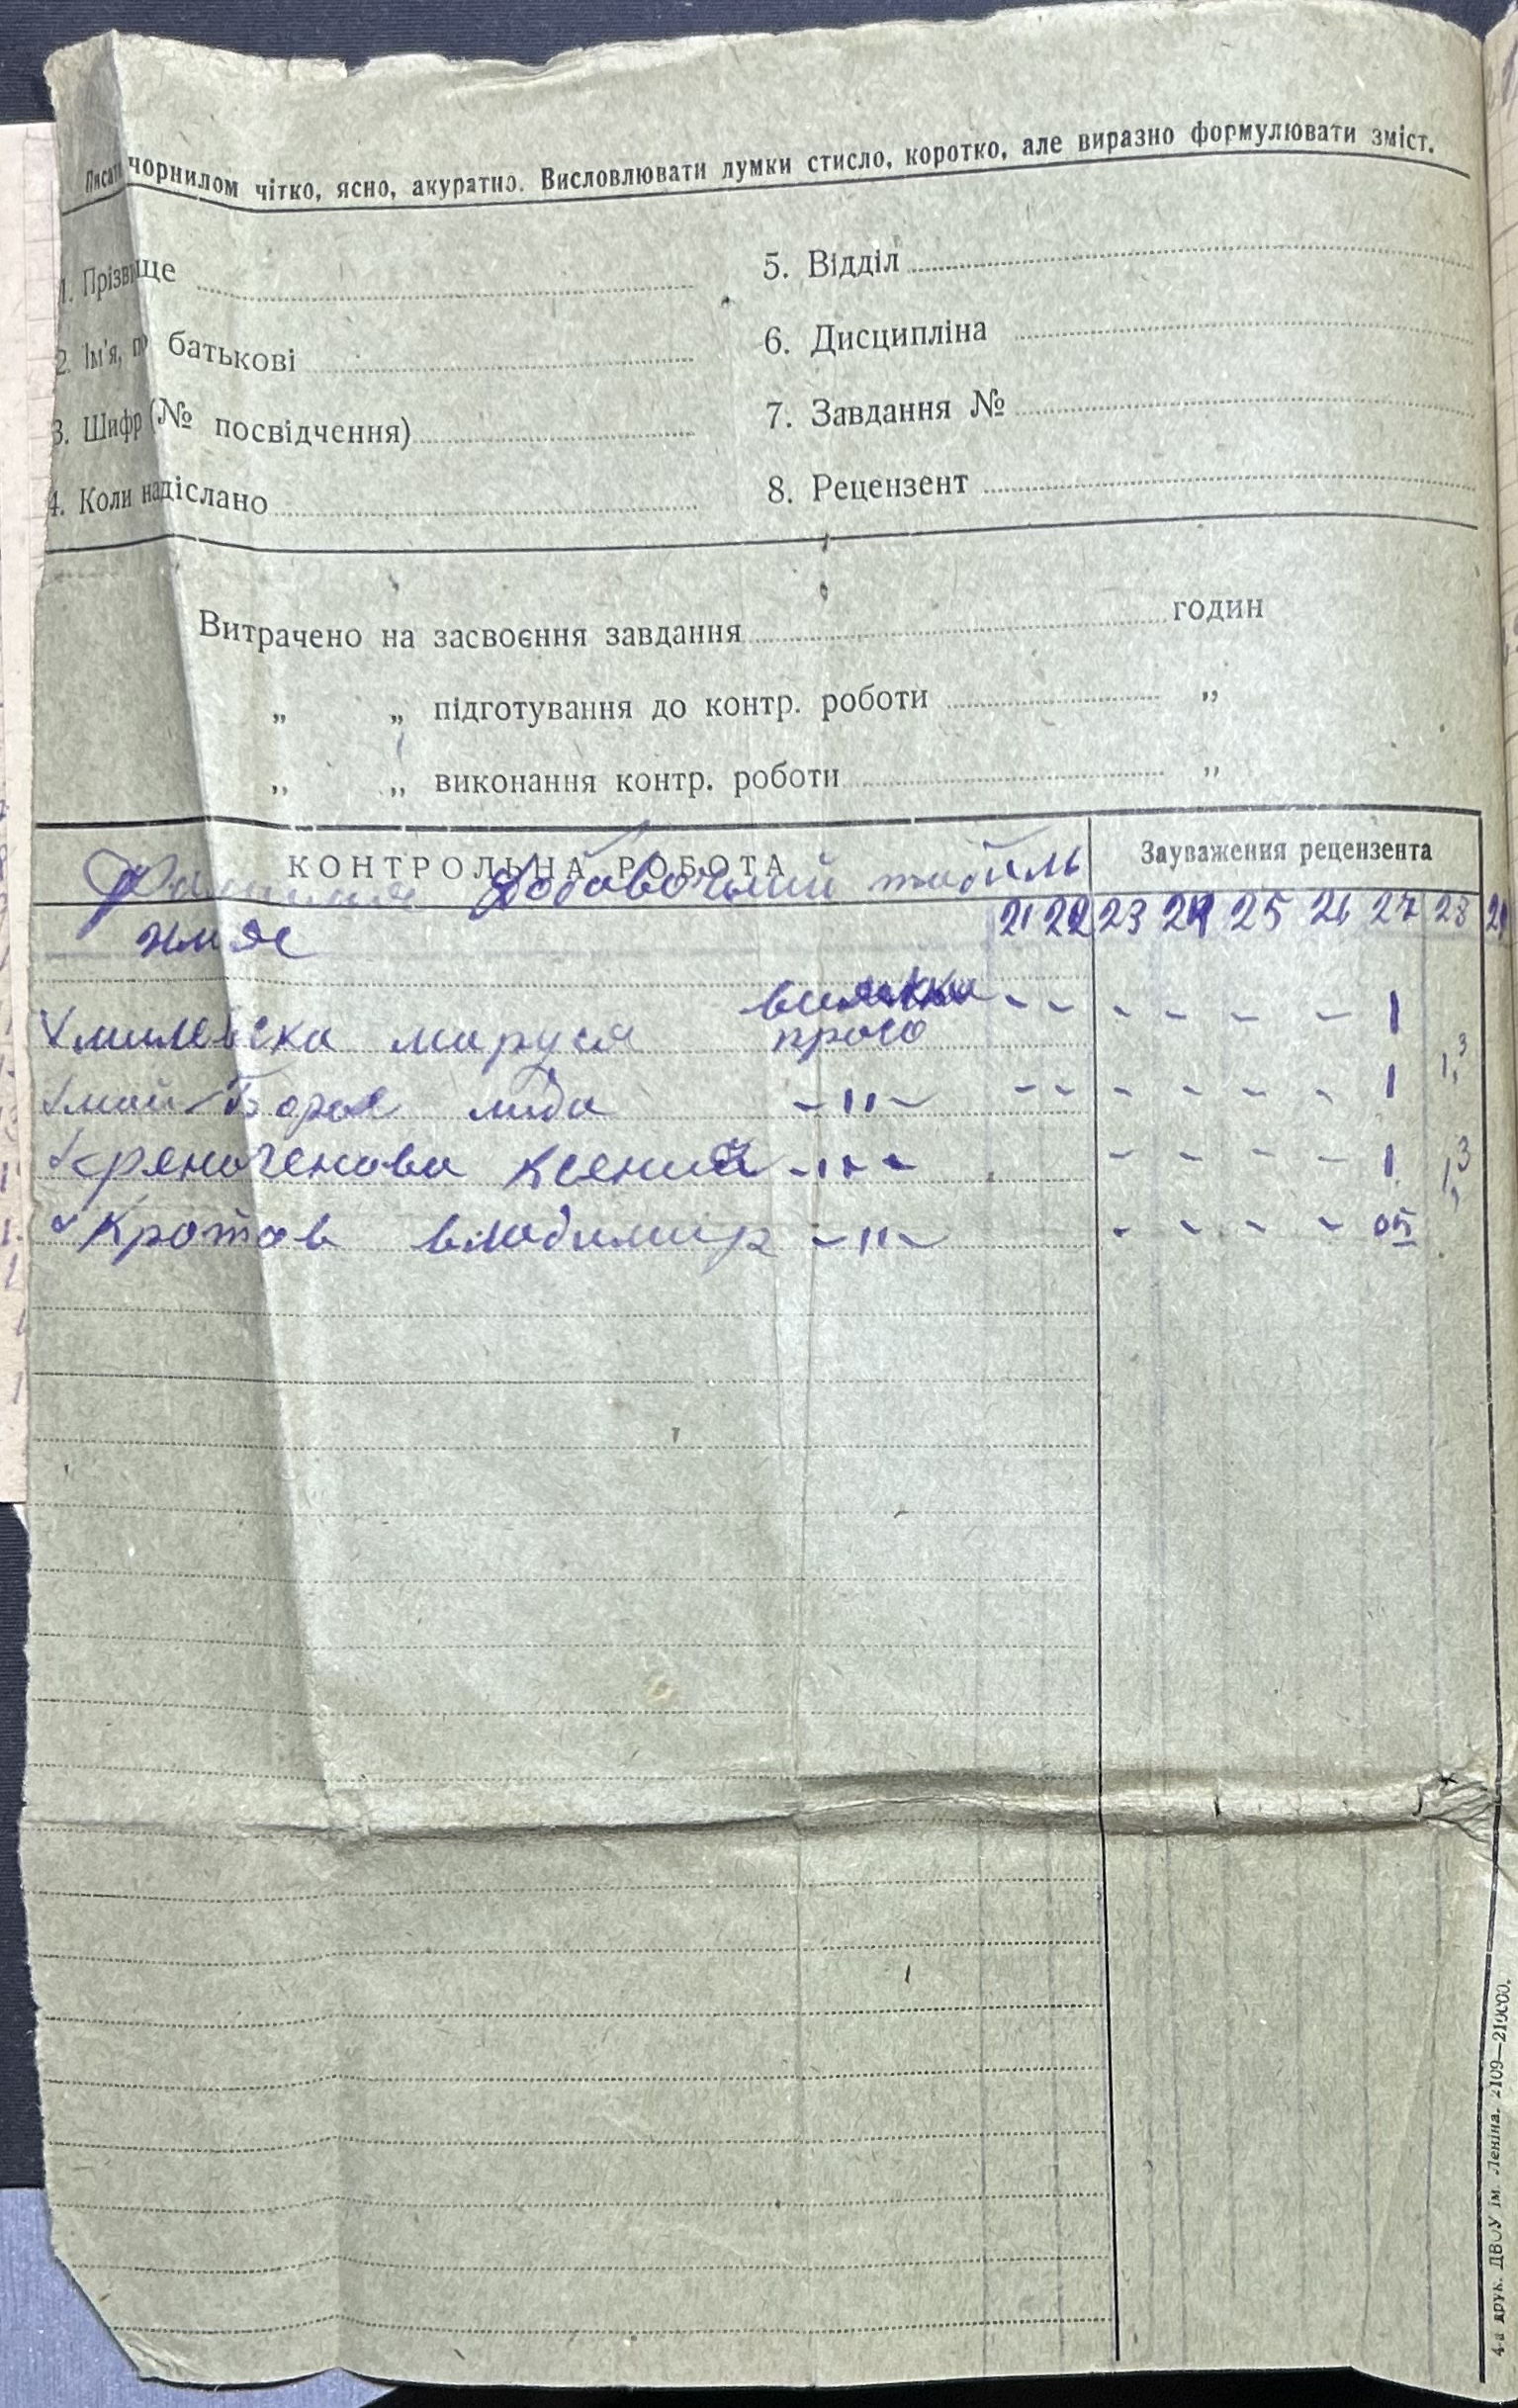 Писати чорнилом чітко, ясно, акуратно. Висловлювати думки стисло, коротко, але виразно формулювати зміст.
1. Прізвище
2. Ім'я, по батькові
3. Шифр (№ посвідчення)
4. Коли надіслано
5. Відділ
6. Дисципліна
7. Завдання №
8. Рецензент
Витрачено на засвоєння завдання годин
„ „ підготування до контр. роботи „
„ „ виконання контр. роботи „
КОНТРОЛЬНА РОБОТА
Зауваження рецензента
Фамилия Добавочний табиль
имяє 21 22 23 24 25 26 27 28 29
маруся просо - - - - - - 1 1,3
май-Борода лида -"- - - - - - - 1
Ксения -"- - - - - 1 1,3
Кротов владимир -"- - - - - 05
4-а друк. ДВОУ ім. Леніна. 2109—210000.